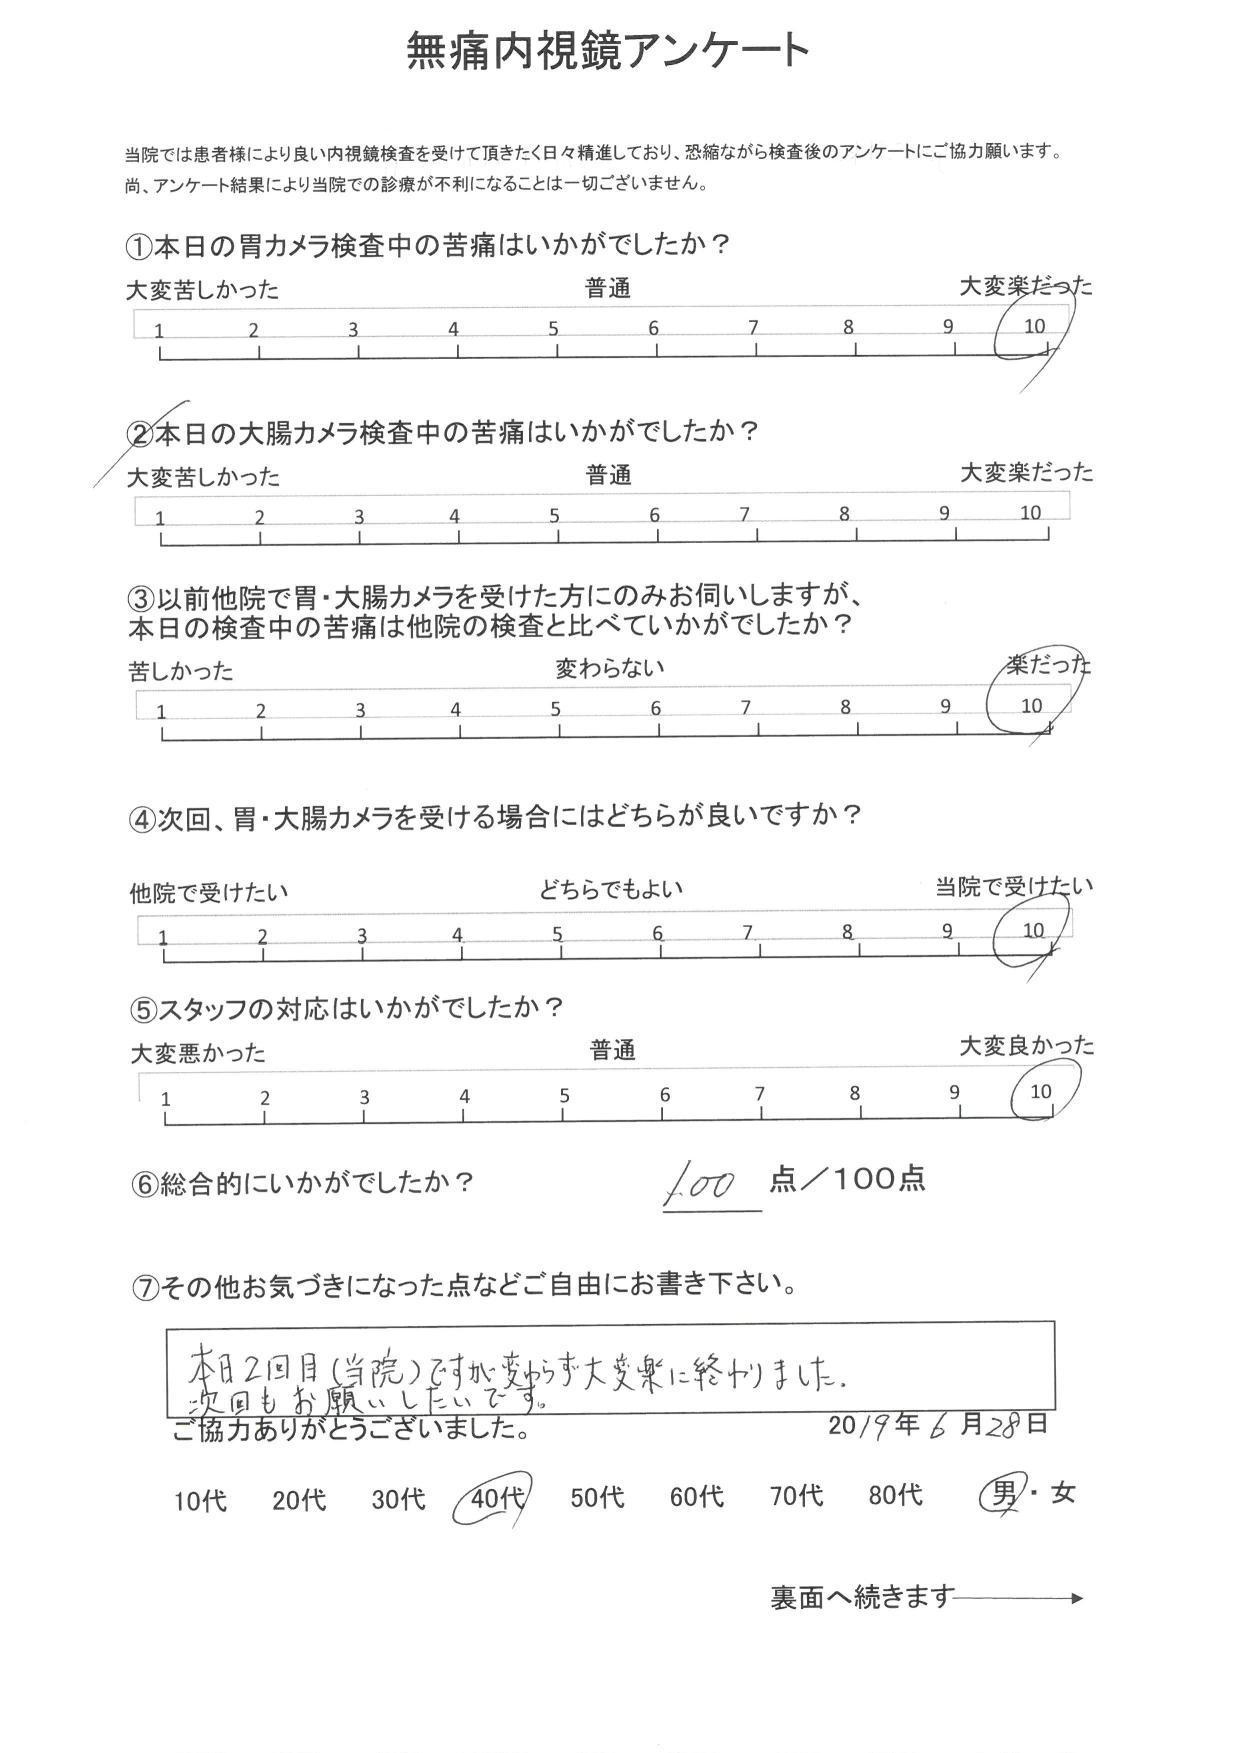 無痛内視鏡アンケート
当院では患者様により良い内視鏡検査を受けて頂きたく日々精進しており、恐縮ながら検査後のアンケートにご協力願います。
尚、アンケート結果により当院での診療が不利になることは一切ございません。
①本日の胃カメラ検査中の苦痛はいかがでしたか？
大変苦しかった 普通 大変楽だった
1 2 3 4 5 6 7 8 9 10
②本日の大腸カメラ検査中の苦痛はいかがでしたか？
大変苦しかった 普通 大変楽だった
1 2 3 4 5 6 7 8 9 10
③以前他院で胃・大腸カメラを受けた方にのみお伺いしますが、
本日の検査中の苦痛は他院の検査と比べていかがでしたか？
苦しかった 変わらない 楽だった
1 2 3 4 5 6 7 8 9 10
④次回、胃・大腸カメラを受ける場合にはどちらが良いですか？
他院で受けたい どちらでもよい 当院で受けたい
1 2 3 4 5 6 7 8 9 10
⑤スタッフの対応はいかがでしたか？
大変悪かった 普通 大変良かった
1 2 3 4 5 6 7 8 9 10
⑥総合的にいかがでしたか？ 100 点／100点
⑦その他お気づきになった点などご自由にお書き下さい。
本日2回目(当院)ですが変わらず大変楽に終わりました.
次回もお願いしたいです。
ご協力ありがとうございました。 2019年6月28日
10代 20代 30代 40代 50代 60代 70代 80代 男・女
裏面へ続きます